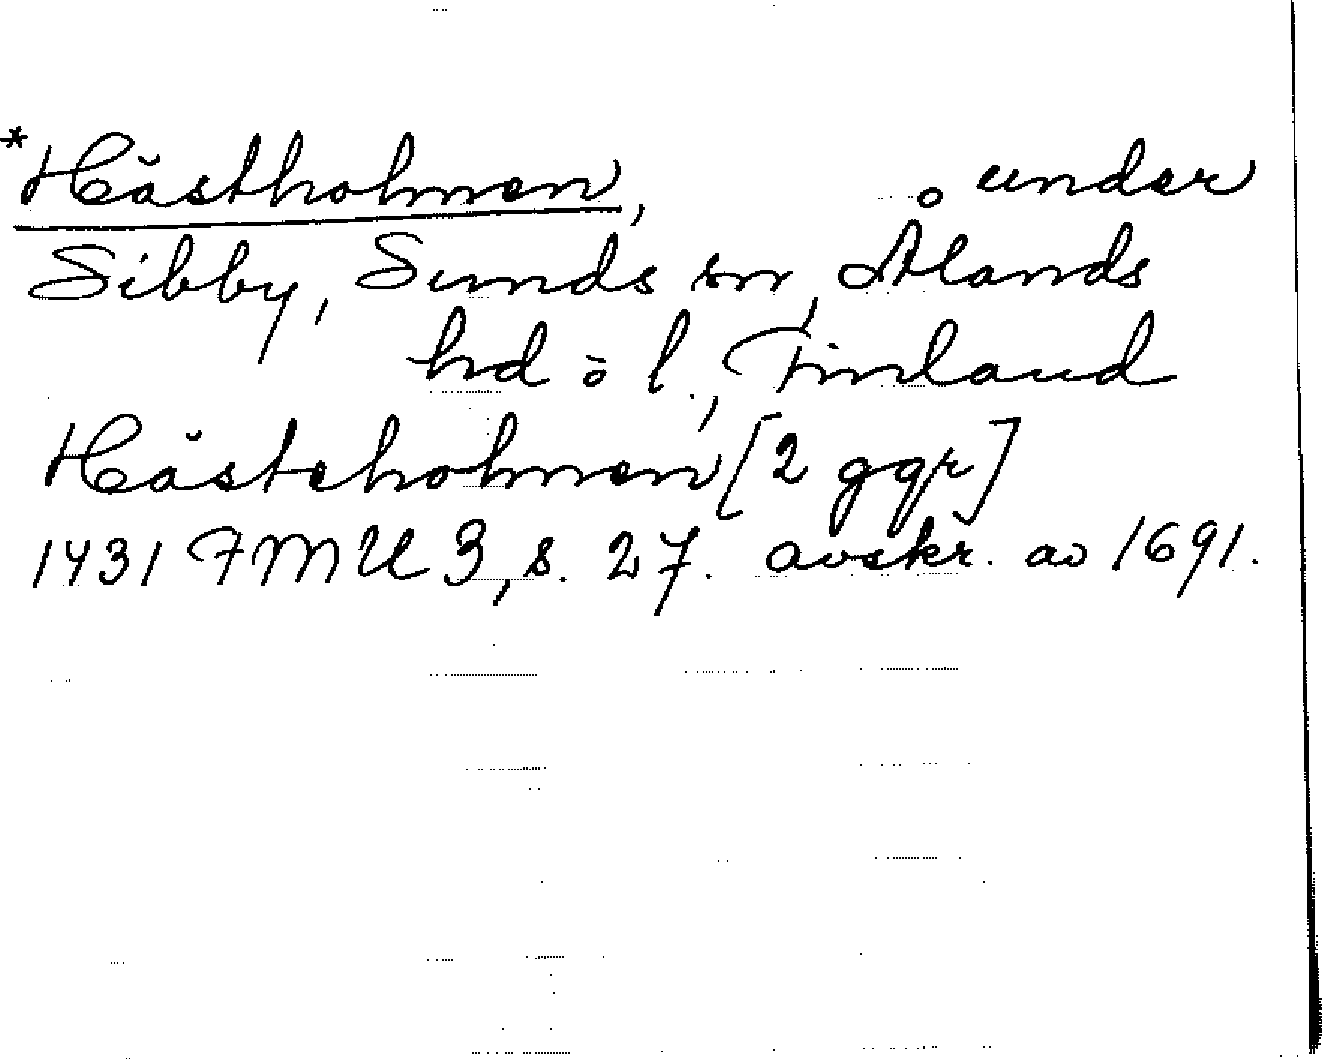 *Hästholmen, under
Sibby, Sunds sn, Ålands
hd o l., Finland
Hästeholmen [2 ggr]
1431 FMU 3, s. 27. avskr. av 1691.